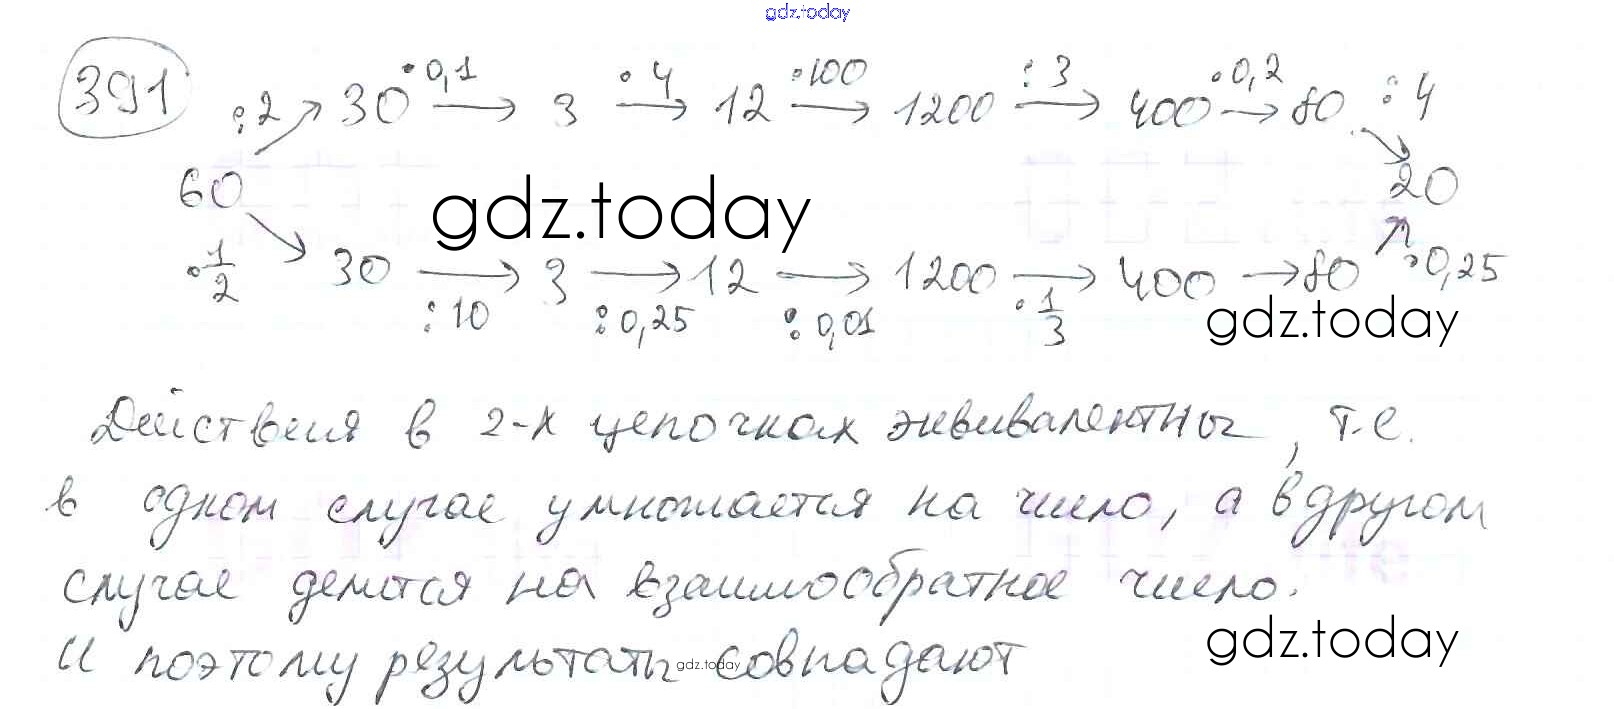 gdz.today
391 :2 30 ·0,1 → 3 ·4 → 12 ·100 → 1200 :3 → 400 ·0,2 → 80 :4
60 gdz.today 20
·1/2 30 → 3 → 12 → 1200 → 400 → 80 ·0,25
:10 :0,25 :0,01 ·1/3 gdz.today
Действия в 2-х цепочках эквивалентны, т.е.
в одном случае умножается на число, а в другом
случае делится на взаимообратное число.
gdz.today
И поэтому результаты совпадают
gdz.today